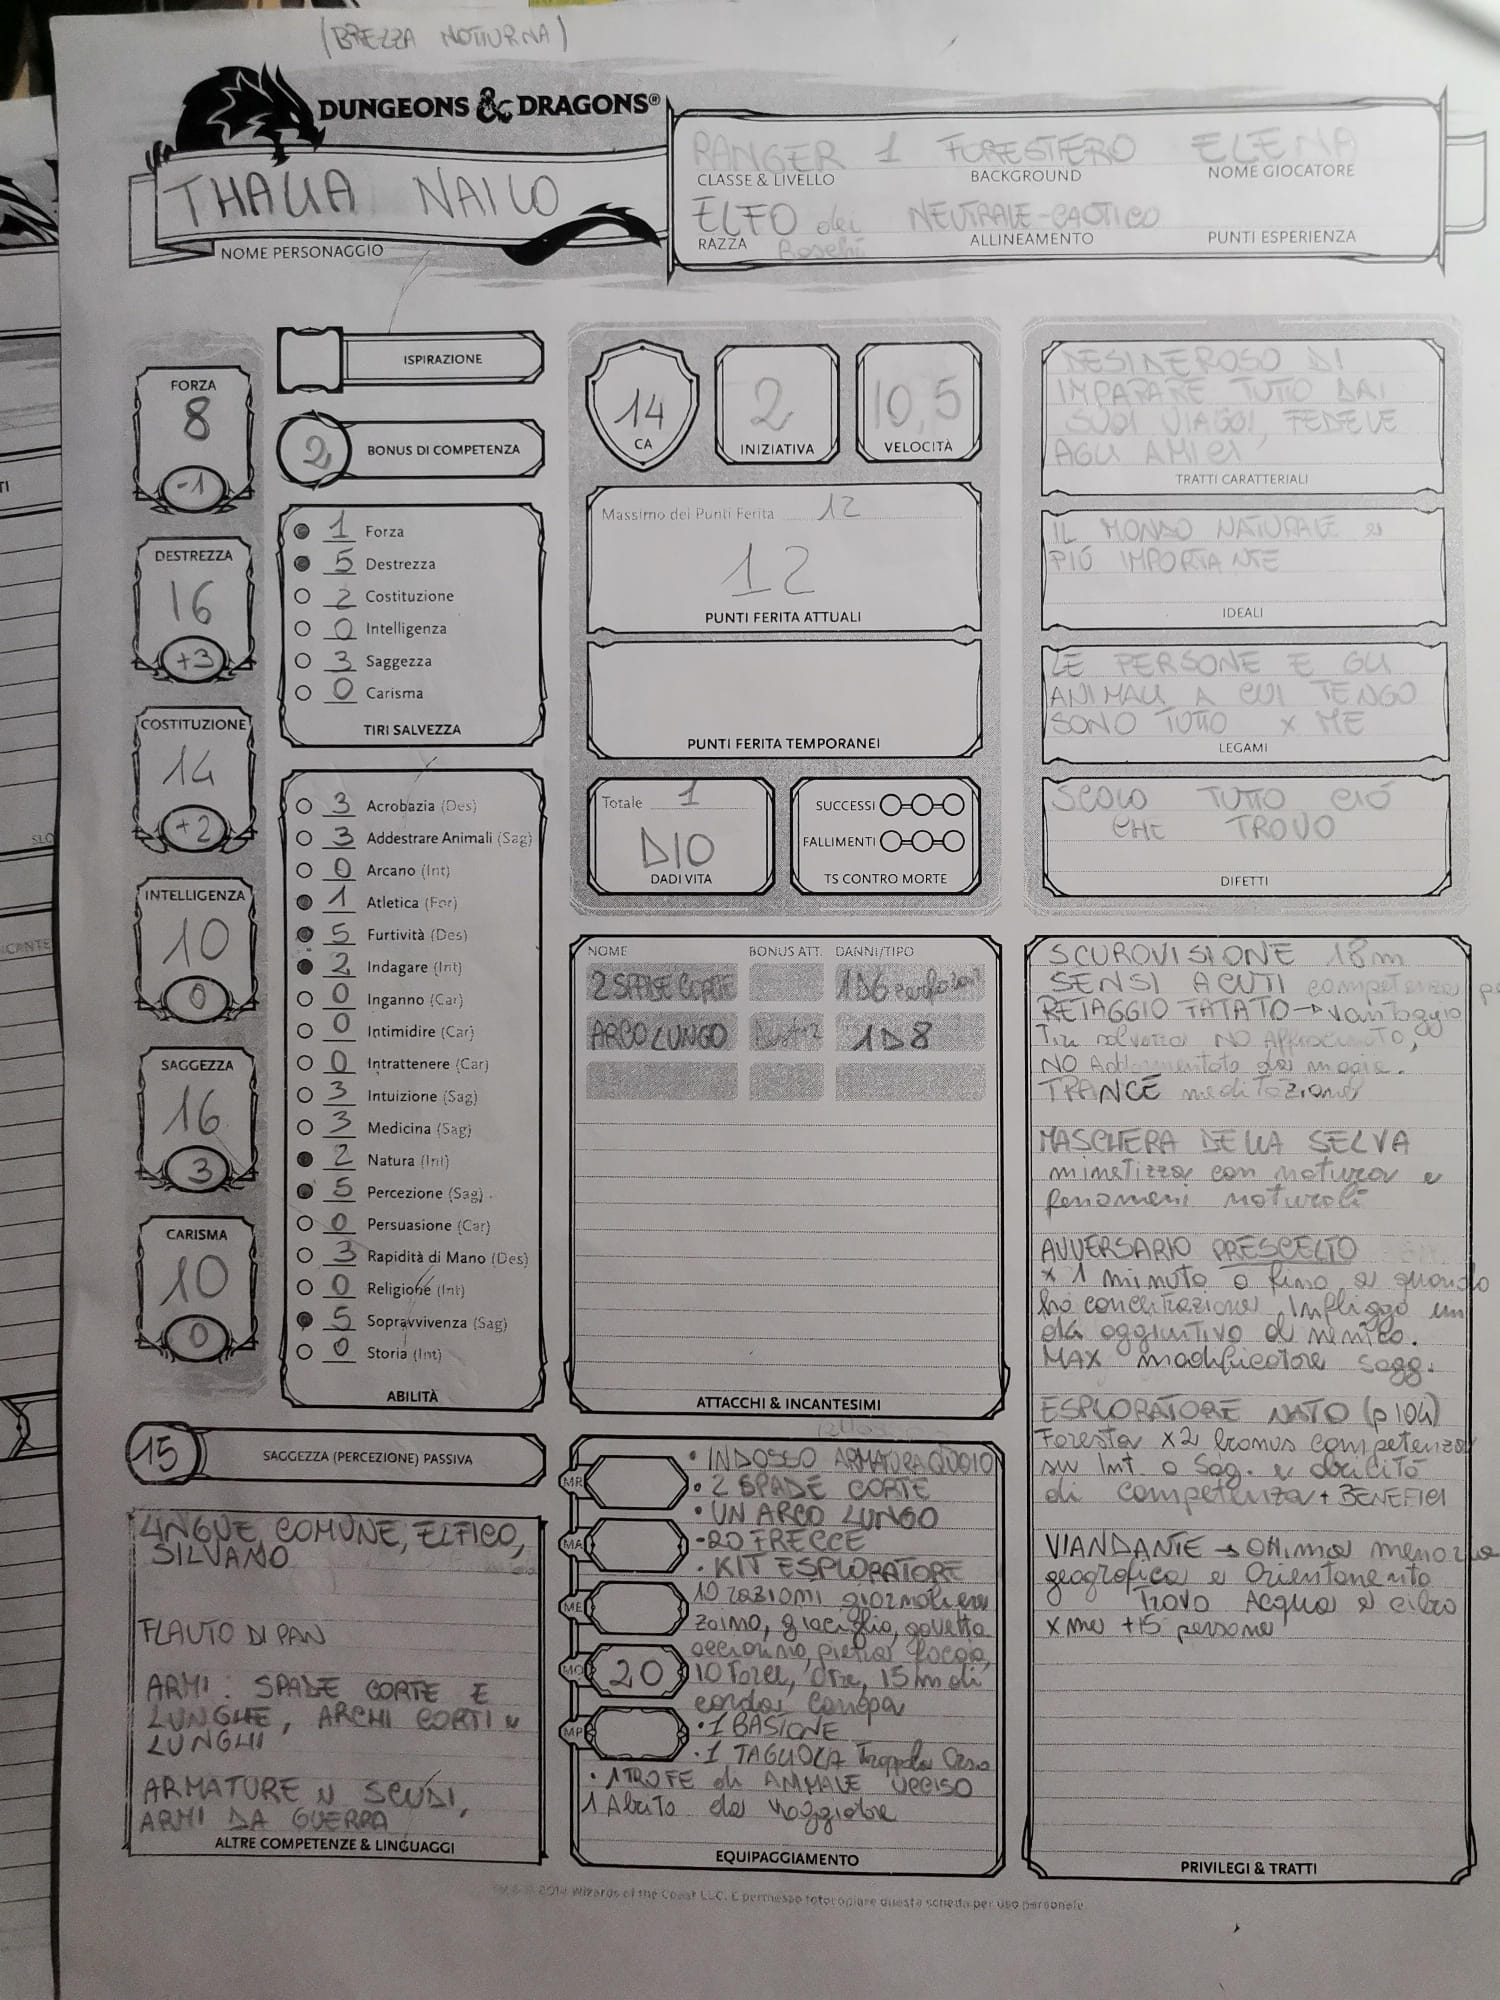 (BREZZA NOTTURNA)
DUNGEONS & DRAGONS®
THALIA NAILO
NOME PERSONAGGIO
RANGER 1 FORESTIERO ELENA
CLASSE & LIVELLO BACKGROUND NOME GIOCATORE
ELFO dei Boschi NEUTRALE-CAOTICO
RAZZA ALLINEAMENTO PUNTI ESPERIENZA
FORZA
8
-1
DESTREZZA
16
+3
COSTITUZIONE
14
+2
INTELLIGENZA
10
0
SAGGEZZA
16
3
CARISMA
10
0
ISPIRAZIONE
2 BONUS DI COMPETENZA
1 Forza
5 Destrezza
2 Costituzione
0 Intelligenza
3 Saggezza
0 Carisma
TIRI SALVEZZA
3 Acrobazia (Des)
3 Addestrare Animali (Sag)
0 Arcano (Int)
1 Atletica (For)
5 Furtività (Des)
2 Indagare (Int)
0 Inganno (Car)
0 Intimidire (Car)
0 Intrattenere (Car)
3 Intuizione (Sag)
3 Medicina (Sag)
2 Natura (Int)
5 Percezione (Sag)
0 Persuasione (Car)
3 Rapidità di Mano (Des)
0 Religione (Int)
5 Sopravvivenza (Sag)
0 Storia (Int)
ABILITÀ
15 SAGGEZZA (PERCEZIONE) PASSIVA
LINGUE, COMUNE, ELFICO,
SILVANO
FLAUTO DI PAN
ARMI: SPADE CORTE E
LUNGHE, ARCHI CORTI e
LUNGHI
ARMATURE e SCUDI,
ARMI DA GUERRA
ALTRE COMPETENZE & LINGUAGGI
14
CA
2
INIZIATIVA
10,5
VELOCITÀ
Massimo dei Punti Ferita 12
12
PUNTI FERITA ATTUALI
PUNTI FERITA TEMPORANEI
Totale 1
D10
DADI VITA
SUCCESSI
FALLIMENTI
TS CONTRO MORTE
NOME BONUS ATT. DANNI/TIPO
2 SPADE CORTE 1D6
ARCO LUNGO 1D8
ATTACCHI & INCANTESIMI
• INDOSSO ARMATURA CUOIO
• 2 SPADE CORTE
• UN ARCO LUNGO
• 20 FRECCE
• KIT ESPLORATORE
10 razioni giornaliere
zaino, giaciglio, gavetta
acciarino, pietra focaia,
10 torce, otre, 15 m di
corda, canapa
• 1 BASTONE
• 1 TAGLIOLA Trappola Orso
• 1 TROFE di ANIMALE UCCISO
1 Abito da viaggiatore
MR
MA
ME
MO 20
MP
EQUIPAGGIAMENTO
DESIDEROSO DI
IMPARARE TUTTO DAI
SUOI VIAGGI, FEDELE
AGLI AMICI
TRATTI CARATTERIALI
IL MONDO NATURALE è
PIÚ IMPORTANTE
IDEALI
LE PERSONE E GLI
ANIMALI A CUI TENGO
SONO TUTTO x ME
LEGAMI
SCOLO TUTTO CIÓ
CHE TROVO
DIFETTI
SCUROVISIONE 18m
SENSI ACUTI competenza
RETAGGIO FATATO → vantaggio
Tiri salvezza NO Affascinato,
NO Addormentato da magia.
TRANCE meditazione
MASCHERA DELLA SELVA
mimetizza con natura e
fenomeni naturali
AVVERSARIO PRESCELTO
x 1 minuto o fino a quando
ho concentrazione. Infliggo un
d4 aggiuntivo al nemico.
MAX modificatore Sagg.
ESPLORATORE NATO (p 104)
Foresta x2 bonus competenza
su Int. o Sag. e abilità
di competenza + BENEFICI
VIANDANTE → Ottima memoria
geografica e Orientamento
Trovo Acqua e cibo
x me +15 persone
PRIVILEGI & TRATTI
2014 Wizards of the Coast LLC. È permesso fotocopiare questa scheda per uso personale